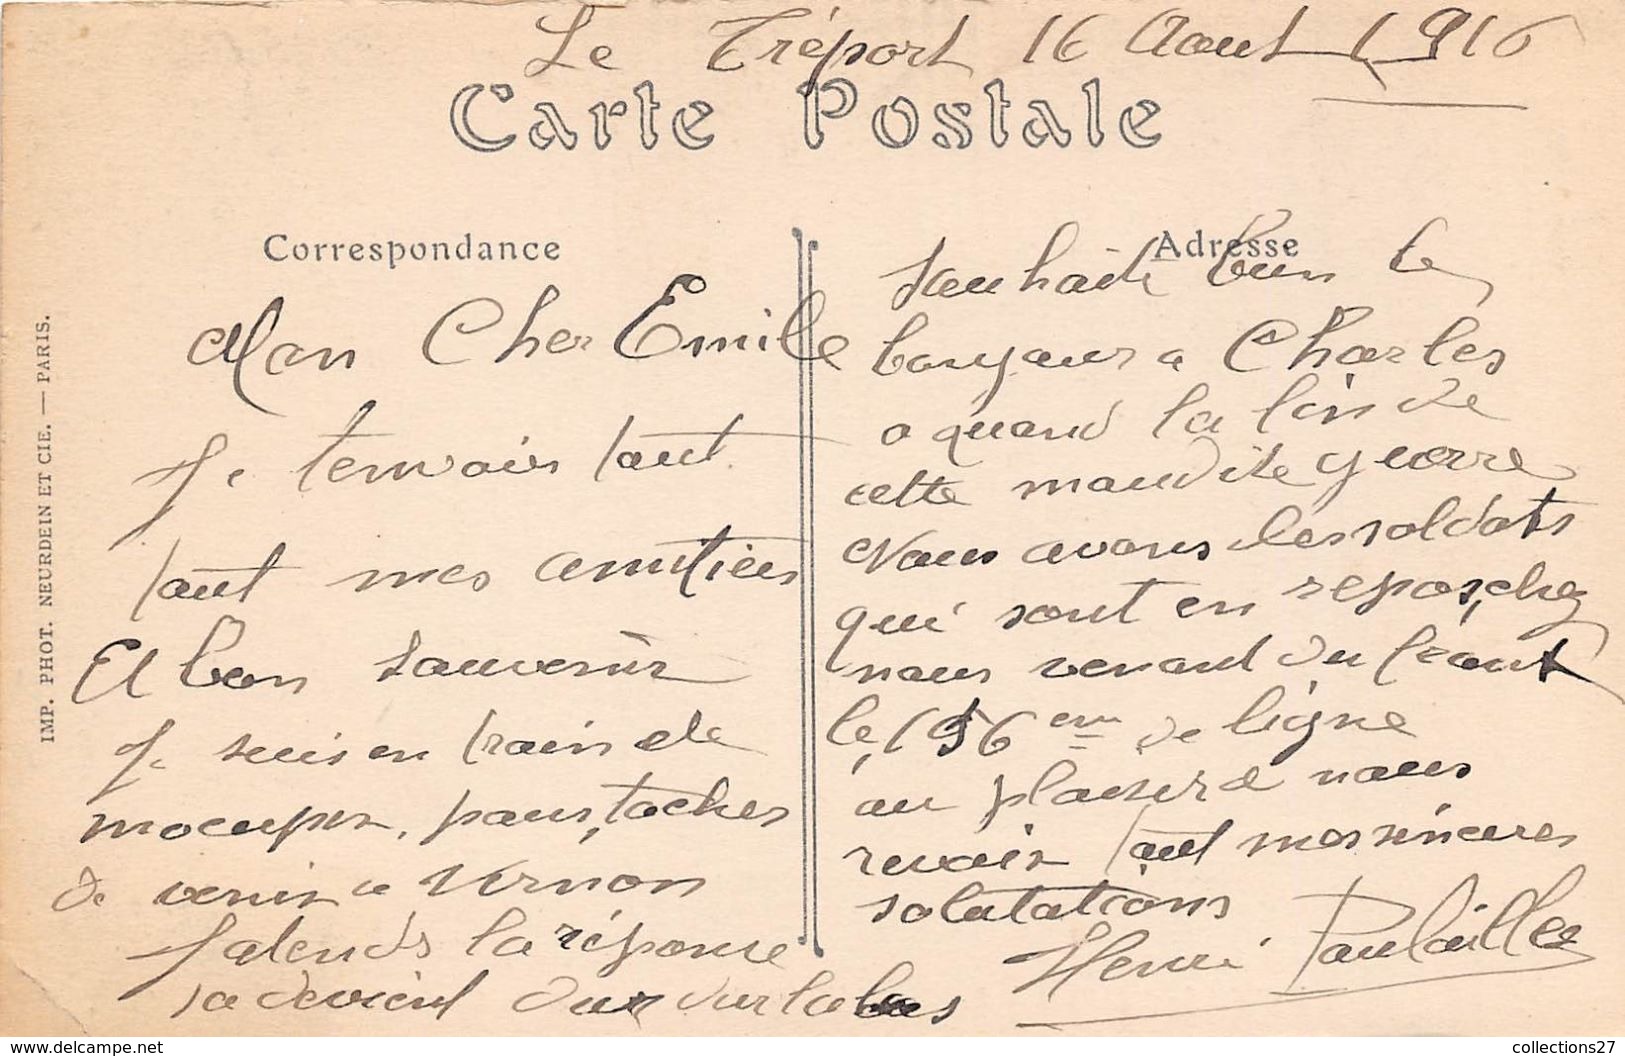 Le Tréport 16 Aout 1916
Carte Postale
Correspondance
Adresse
Mon Cher Emile
Je tenvois tout
tout mes amitiées
Et bon souvenir
Je suis en train de
mocuper, pour, tacher
de venir a Vernon
Jatends la réponse
sa devient dur dur la bas
souhaite bien le
bonjour a Charles
a quand la fin de
cette maudite guerre
Nous avons des soldats
qui sont en repos, chez
nous venant du front
le 156 eme de ligne
au plaisir de nous
revoir tout mes sinceres
salutations
Henri
IMP. PHOT. NEURDEIN ET CIE. — PARIS.
collections27